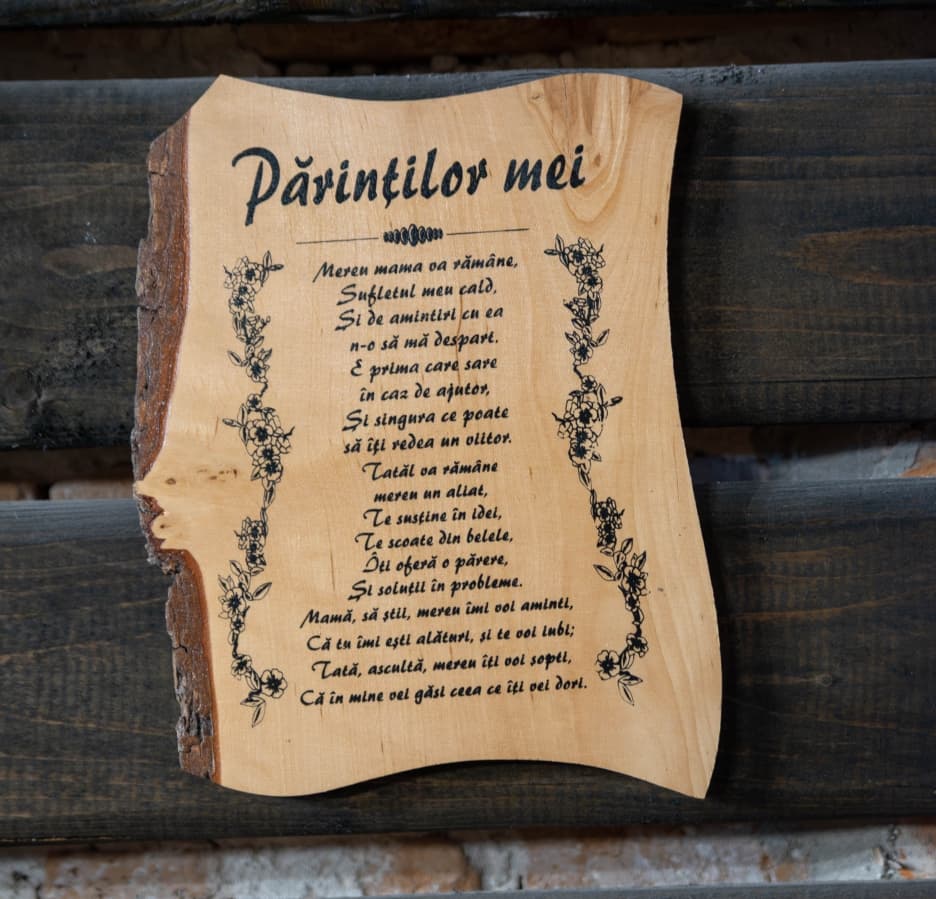 Părinților mei
Mereu mama va rămâne,
Sufletul meu cald,
Și de amintiri cu ea
n-o să mă despart.
E prima care sare
în caz de ajutor,
Și singura ce poate
să îți redea un viitor.
Tatăl va rămâne
mereu un aliat,
Te susține în idei,
Te scoate din belele,
Îți oferă o părere,
Și soluții în probleme.
Mamă, să știi, mereu îmi voi aminti,
Că tu îmi ești alături, și te voi iubi;
Tată, ascultă, mereu îți voi șopti,
Că în mine vei găsi ceea ce îți vei dori.